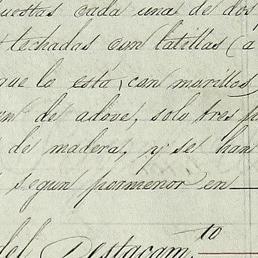 puertas cada una de dos
techadas con latillas (a
que lo está, con murillos
de adove, solo tres p
de madera, y se han
segun pormenor en
del Destacam.to